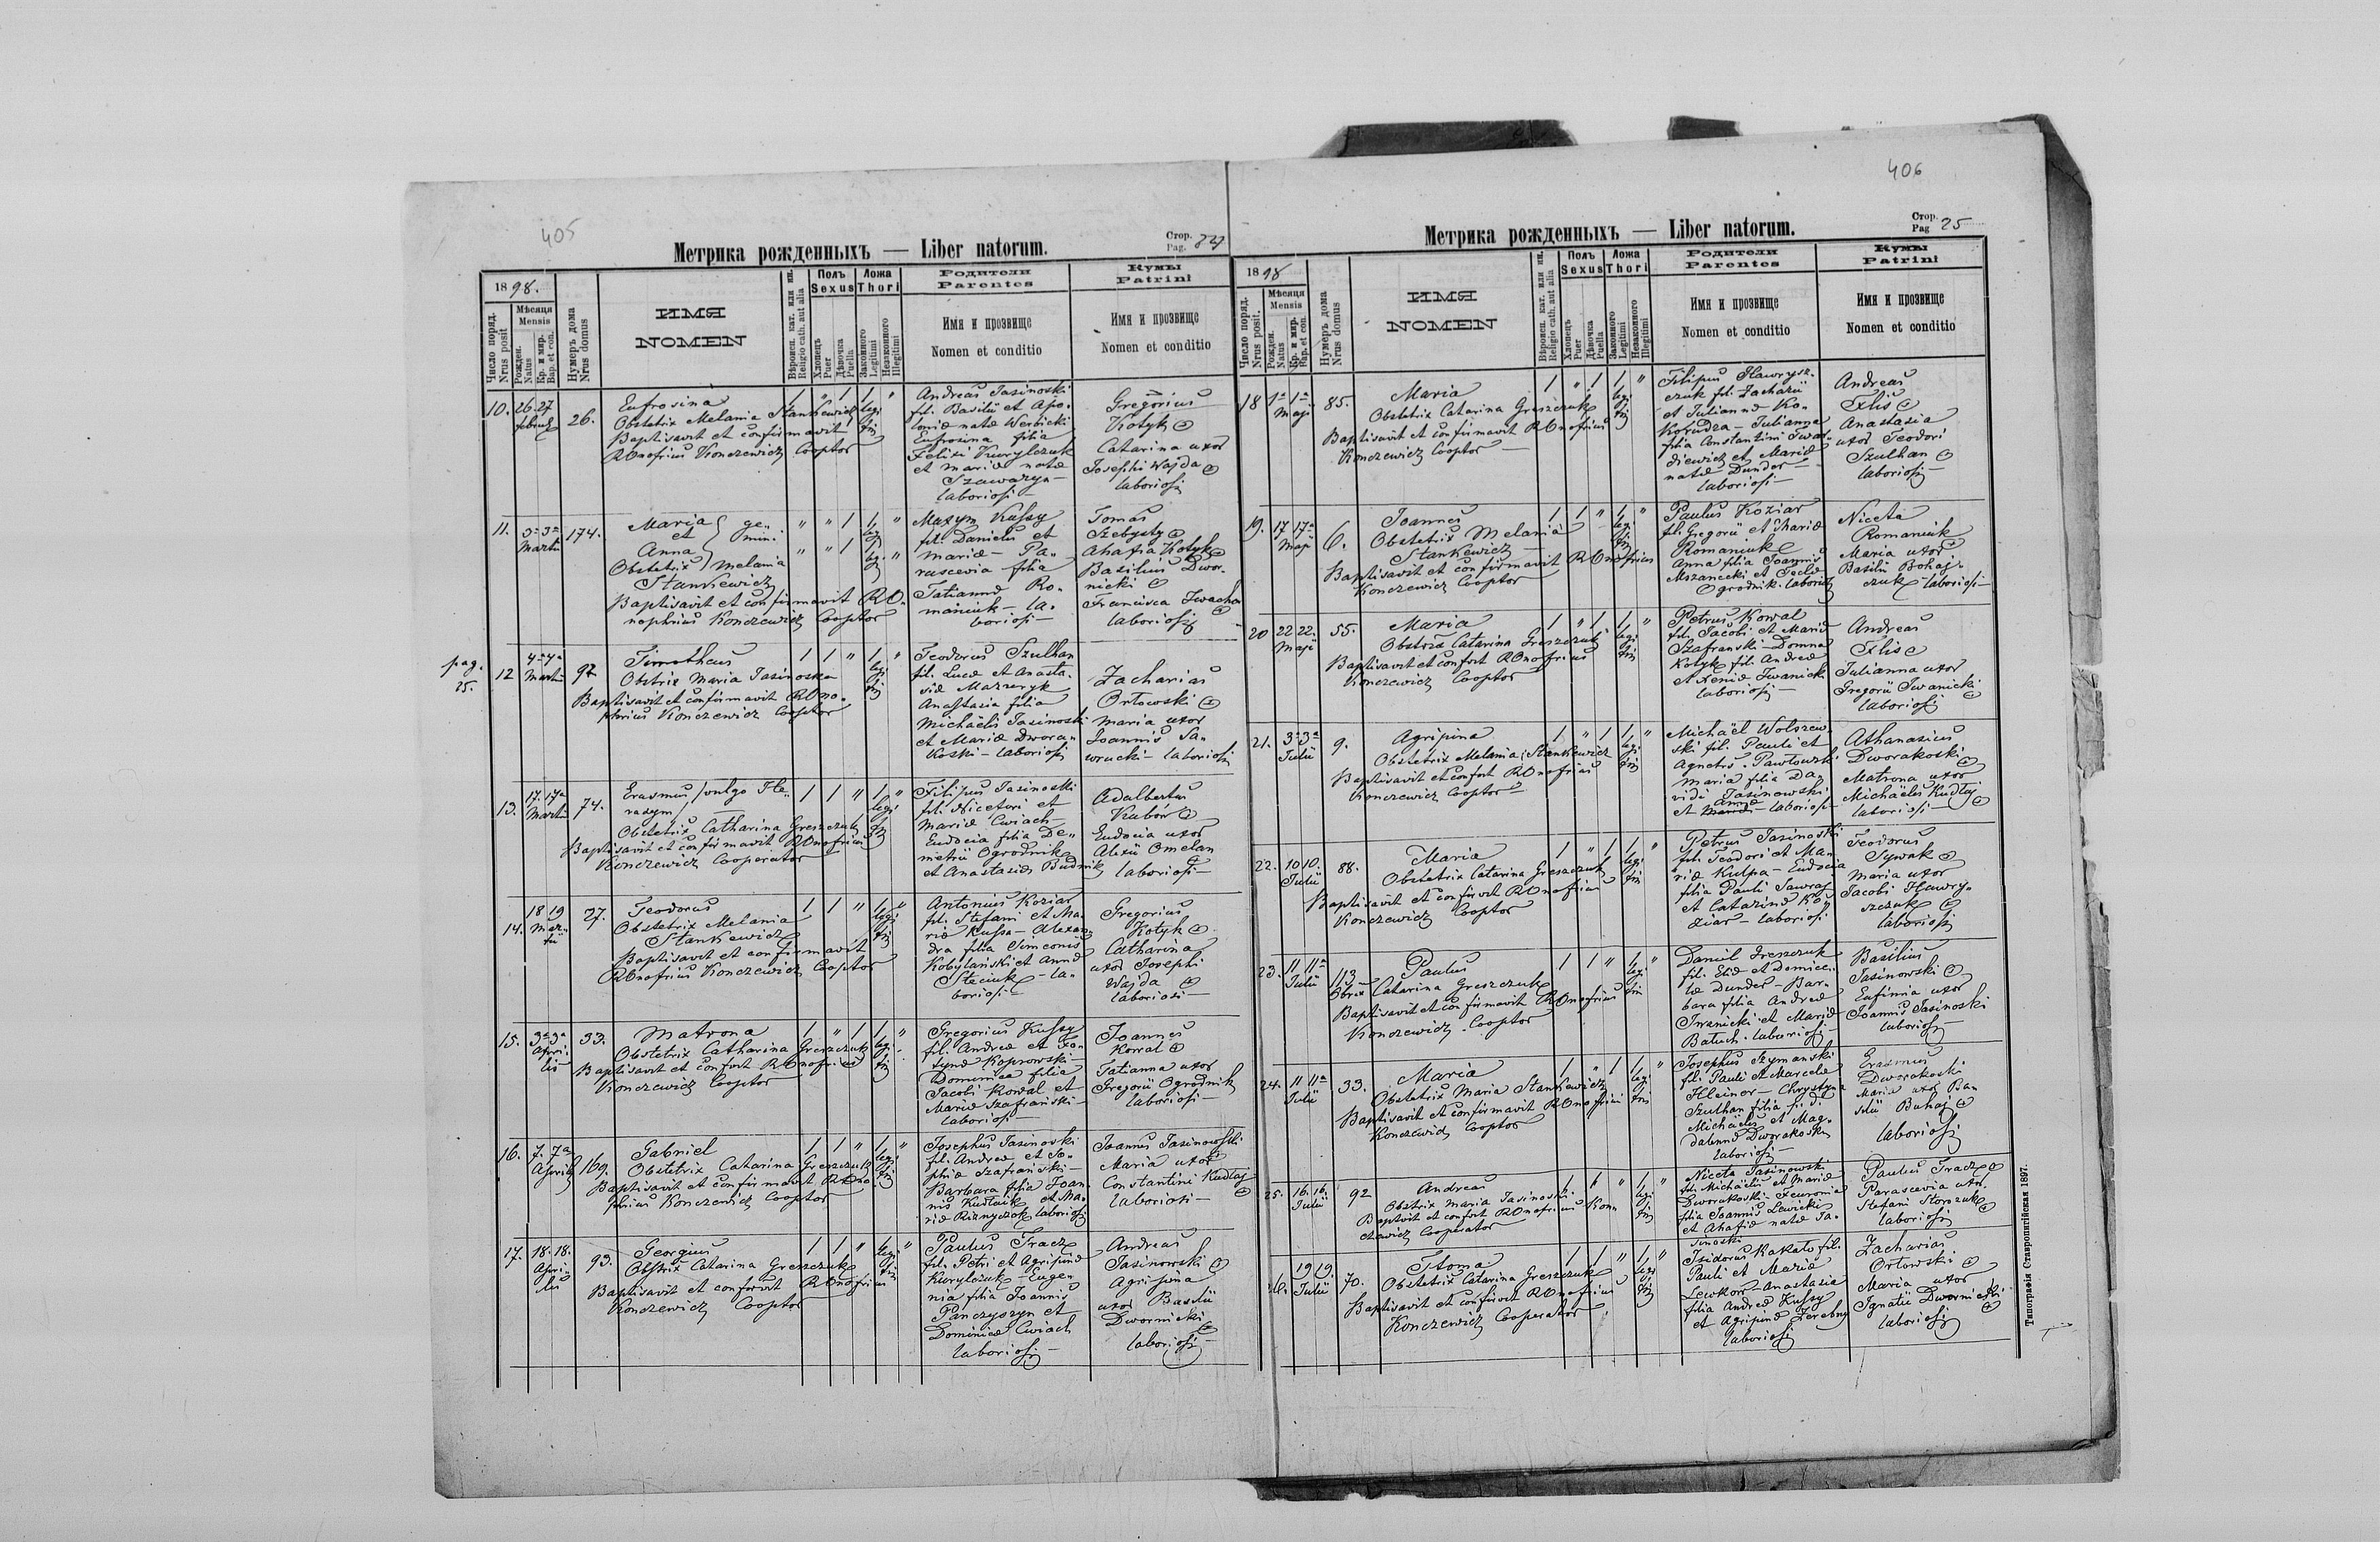 405
Метрика рожденныхъ — Liber natorum.
Стор.
Pag. 24
1898.
Число поряд.
Nrus posit
Мѣсяця
Mensis
Рожден.
Natus
Кр. и мир.
Bap. et con.
Нумеръ дома
Nrus domus
ИМЯ
NOMEN
Вѣроисп. кат. или ин.
Religio cath. aut alia
Полъ
Sexus
Хлопецъ
Puer
Дѣвочка
Puella
Ложа
Thori
Законного
Legitimi
Незаконного
Illegitimi
Родители
Parentes
Имя и прозвище
Nomen et conditio
Кумы
Patrini
Имя и прозвище
Nomen et conditio
10. 26. 27 26.
Eufrosina
Obstetrix Melania Stankewicz
Baptisavit et confirmavit
ROnofrius Konczewicz Cooptor
1 " 1 1 "
legi
tim
Andreas Jasinoski
fil. Basilii et Apo-
loniæ natæ Werbicki
Eufrosina filia
Felixi Kurylczuk
et Mariæ natæ
Szawaryn
laboriosi
Gregorius
Kotyk
Catarina uxor
Josephi Wajda
laboriosi
11. 3ª 3ª Martii 174.
Maria ge-
et mini
Anna
Obstetrix Melania
Stankewicz
Baptisavit et confirmavit RO-
nophrius Konczewicz Cooptor
" " 1 1 "
" " 1
Maxym Kussy
fil. Danielis et
Mariæ – Pa-
rascevia filia
Tatiannæ Ro-
maniuk – la-
boriosi –
Tomas
Szebysty
Ahafia Kotyk
Basilius Dwor-
nicki
Francisca Iwacha
laboriosi
pag.
25.
12 4ª 4ª Martii 92
Timotheus
Obstrix Maria Jasinoska
Baptisavit et confirmavit ROno-
phrius Konczewicz Cooptor
1 1 " 1 "
legi
tim
Teodorus Szulhan
fil. Lucæ et Anasta-
siæ Mazuryk
Anastasia filia
Michaëlis Jasinoski
et Mariæ Dwora-
koski – laboriosi
Zacharias
Orłowski
Maria uxor
Joannis Sa-
wrucki – laboriosi
13. 17. 17ª Martii 74.
Erasmus /vulgo He-
rasym/
Obstetrix Catharina Greszczuk
Baptisavit et confirmavit ROnofrius
Konczewicz Cooperator
1 1 " 1 "
legi
tim
Filipus Jasinoski
fil. Nicetæ et
Mariæ Cwiach
Eudocia filia De-
metrii Ogrodnik
et Anastasiæ Budnik
Adalbertus
Kubów
Eudocia uxor
Alexii Omelan
laboriosi –
14. 18 19 Mar-
tii 27.
Teodorus
Obstetrix Melania
Stankewicz
Baptisavit et confirmavit
ROnofrius Konczewicz Cooptor
1 1 " 1 "
legi
tim
Antonius Koziar
fil. Stefani et Ma-
riæ Kussa – Alexan-
dra filia Simeonis
Kobylański et Annæ
Steciuk – la-
boriosi –
Gregorius
Kotyk
Catharina
uxor Josephi
Wajda
laboriosi –
15. 3ª 3ª Apri-
lis 33.
Matrona
Obstetrix Catharina Greszczuk
Baptisavit et confvit ROnofrius
Konczewicz Cooptor
1 " 1 1 "
legi
tim
Gregorius Kussy
fil. Andreæ et Fo-
tynæ Koprowski –
Dominica filia
Jacobi Kowal et
Mariæ Szafrański –
laboriosi
Joannes
Kowal
Tatianna uxor
Gregorii Ogrodnik
laboriosi –
16. 7. 7ª Aprilis 169.
Gabriel
Obstetrix Catarina Greszczuk
Baptisavit et confirmavit ROno-
phrius Konczewicz Cooptor
1 1 " 1 "
legi
tim
Josephus Jasinoski
fil. Andreæ et So-
phiæ Szafrański –
Barbara filia Joan-
nis Kudłaik et Ma-
riæ Riznyczok laboriosi
Joannes Jasinowski
Maria uxor
Constantini Kudłaj
laboriosi –
17. 18. 18. Apri-
lis 93.
Georgius
Obstrix Catarina Greszczuk
Baptisavit et confirvit ROnofrius
Konczewicz Cooptor
1 1 " legi "
tim
Paulus Tracz
fil. Petri et Agripinæ
Kurylczuk – Euge-
nia filia Joannis
Panczyszyn et
Dominicæ Cwiach
laboriosi –
Andreas
Jasinowski
Agripina
uxor Basilii
Dwornicki
laboriosi –
406
Метрика рожденныхъ — Liber natorum.
Стор.
Pag 25
1898
Число поряд.
Nrus posit.
Мѣсяця
Mensis
Рожден.
Natus
Кр. и мир.
Bap. et con.
Нумеръ дома
Nrus domus
ИМЯ
NOMEN
Вѣроисп. кат. или ин.
Religio cath. aut alia
Полъ
Sexus
Хлопецъ
Puer
Дѣвочка
Puella
Ложа
Thori
Законного
Legitimi
Незаконного
Illegitimi
Родители
Parentes
Имя и прозвище
Nomen et conditio
Кумы
Patrini
Имя и прозвище
Nomen et conditio
18 1ª 1ª Maji 85.
Maria
Obstetrix Catarina Greszczuk
Baptisavit et confirmavit ROnofrius
Konczewicz Cooptor –
1 " 1 1 "
legi
tim
Filipus Hawrysz-
czuk fil. Zachariæ
et Juliannæ Ko-
korudza – Julianna
filia Constantini Twar-
diewicz et Mariæ
natæ Dunder –
laboriosi –
Andreas
Flis
Anastasia
uxor Teodori
Szulhan
laboriosi –
19. 17 17ª Maji 6.
Joannes
Obstetrix Melania
Stankewicz –
Baptisavit et confirmavit ROnofrius
Konczewicz Cooptor
1 1 " 1 "
legi
tim
Paulus Koziar
fil. Gregorii et Mariæ
Romaniuk
Anna filia Joannis
Mszanecki et Teclæ
Ogrodnik. laboriosi
Niceta
Romaniuk
Maria uxor
Basilii Bohaj-
czuk – laboriosi –
20 22 22. Maji 55.
Maria
Obstrix Catarina Greszczuk
Baptisavit et confvit ROnofrius
Konczewicz Cooptor
1 " 1 1 "
legi
tim
Petrus Kowal
fil. Jacobi et Mariæ
Szafranski – Domna
Kotyk fil. Andreæ
et Xeniæ Iwanicki
laboriosi –
Andreas
Flis
Julianna uxor
Gregorii Iwanicki
laboriosi
21. 3ª 3ª Julii 9.
Agripina
Obstetrix Melania Stankewicz
Baptisavit et confvit ROnofrius
Konczewicz Cooptor –
1 " 1 1 "
legi
tim
Michaël Wolszew-
ski fil. Pauli et
Agnetis Pawłowski
Maria filia Da-
vidi Jasinowski
et Annæ – laboriosi –
Athanasius
Dworakoski
Matrona uxor
Michaëlis Kudłaj
laboriosi –
22. 10 10. Julii 88.
Maria
Obstetrix Catarina Greszczuk
Baptisavit et confirvit ROnofrius
Konczewicz Cooptor
1 " 1 1 "
legi
tim
Petrus Jasinoski
fil. Teodori et Ma-
riæ Kulpa – Eudocia
filia Pauli Sawraj
et Catarinæ Ko-
ziar – laboriosi
Teodorus
Sywak
Maria uxor
Jacobi Hawry-
szczuk
laboriosi
23. 11 11ª Julii 113
Paulus
Obrix Catarina Greszczuk
Baptisavit et confirmavit ROnofrius
Konczewicz. Cooptor
1 1 " 1 "
legi
tim
Daniel Greszczuk
fil. Eliæ et Domicel-
læ Dunder – Bar-
bara filia Andreæ
Iwanicki et Mariæ
Batuch. laboriosi –
Basilius
Jasinowski
Eufimia uxor
Joannis Jasinoski
laboriosi
24. 11 11ª Julii 33.
Maria
Obstetrix Maria Stankewicz
Baptisavit et confirmavit ROnofrius
Konczewicz Cooptor
1 " 1 1 "
legi
tim
Josephus Szymanski
fil. Pauli et Marcelæ
Kleiner – Chrystyna
Szulhan filia
Michaëlis et Mag-
dalennæ Dworakoski
laboriosi –
Erasmus
Dworakoski
Maria uxor Ba-
silii Buhaj
laboriosi
25. 16. 16. Julii 92
Andreas
Obstrix Maria Jasinoski
Baptvit et confvit ROnofrius Kon-
czewicz Cooperator
1 1 " 1 "
legi
tim
Niceta Jasinowski
fil. Michaëlis et Mariæ
Dworakoski – Fewronia
filia Joannis Lewicki
et Ahafiæ natæ Ja-
sinoski
Paulus Tracz
Parascevia uxor
Stefani Storozuk
laboriosi
26. 19 19. Julii 70.
Thoma
Obstetrix Catarina Greszczuk
Baptisavit et confirvit ROnofrius
Konczewicz Cooperator
1 1 " 1 "
legi
tim
Isidorus Kakato fil.
Pauli et Mariæ
Lewkow – Anastasia
filia Andreæ Kussy
et Agripinæ Zerebny
laboriosi
Zacharias
Orłowski
Maria uxor
Ignatii Dwornicki
laboriosi
Типографія Ставропигійская 1897.